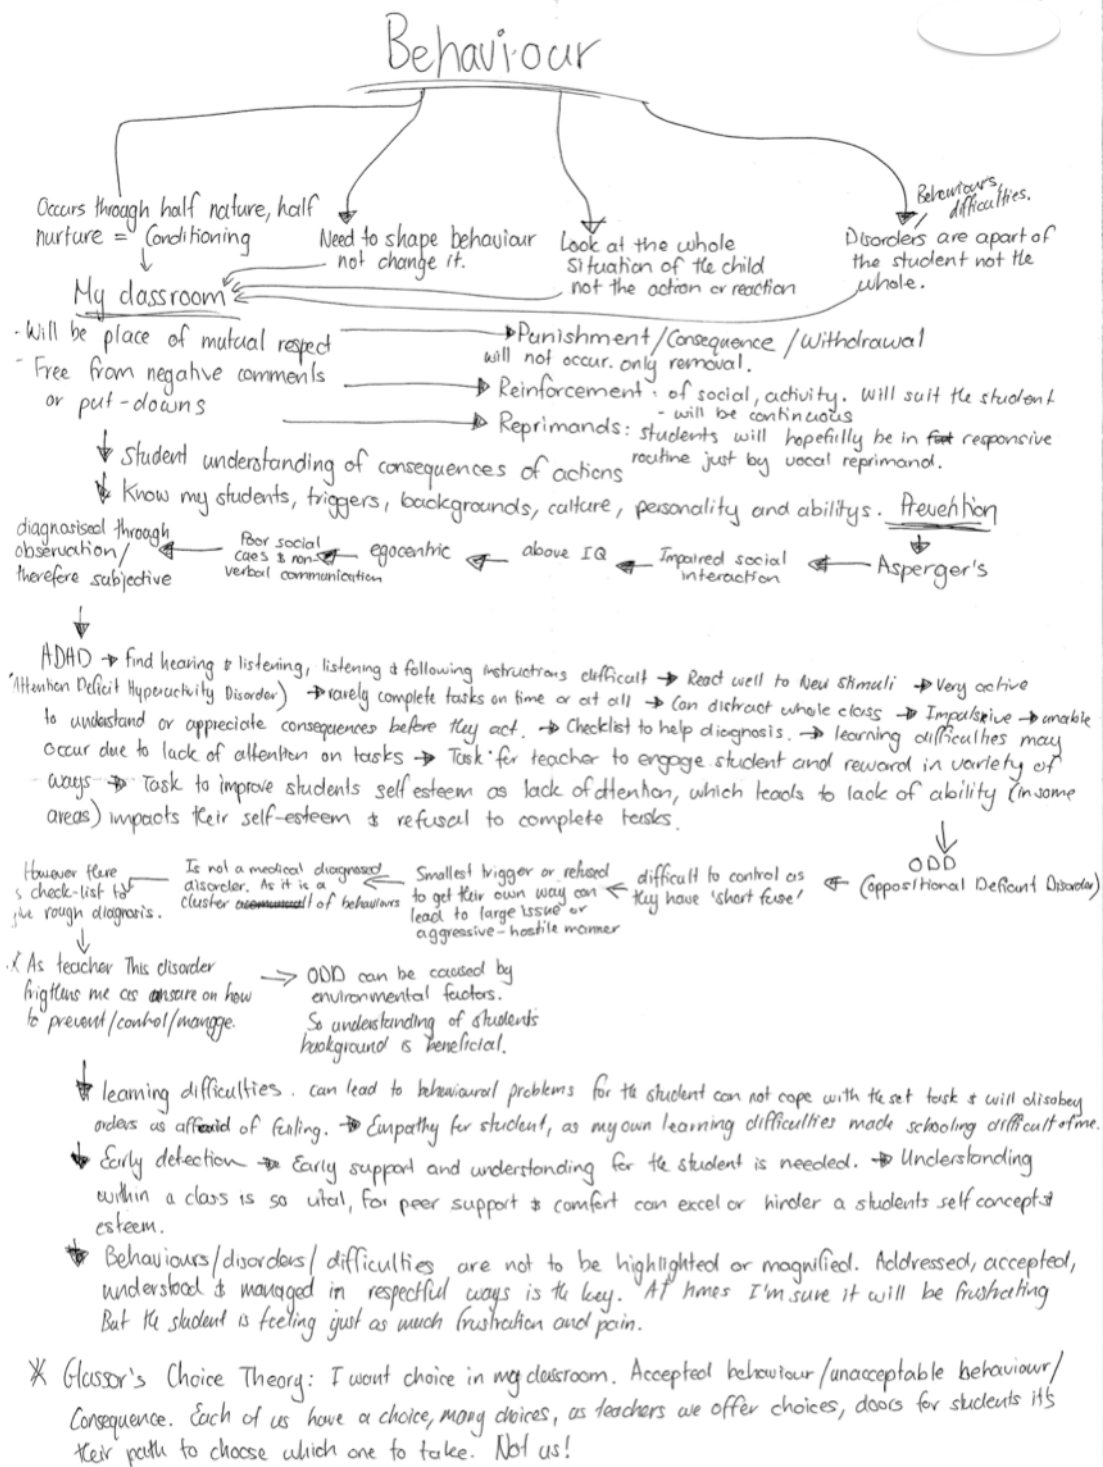 Behaviour
Occurs through half nature, half
nurture = Conditioning
Need to shape behaviour
not change it.
Look at the whole
situation of the child
not the action or reaction
Behaviours,
difficulties.
Disorders are apart of
the student not the
whole.
My classroom
- Will be place of mutual respect
- Free from negative comments
or put-downs
Punishment/Consequence/Withdrawal
will not occur. only removal.
Reinforcement: of social, activity. Will suit the student
- will be continuous
Reprimands: students will hopefully be in responsive
routine just by vocal reprimand.
Student understanding of consequences of actions
Know my students, triggers, backgrounds, culture, personality and abilitys. Prevention
Asperger's
Impaired social
interaction
above IQ
egocentric
Poor social
cues & non-
verbal communication
diagnosised through
observation/
therefore subjective
ADHD → find hearing & listening, listening & following instructions difficult → React well to New Stimuli → Very active
(Attention Deficit Hyperactivity Disorder) → rarely complete tasks on time or at all → Can distract whole class → Impulsive → unable
to understand or appreciate consequences before they act. → Checklist to help diagnosis. → learning difficulties may
occur due to lack of attention on tasks → Task for teacher to engage student and reward in variety of
ways → Task to improve students self esteem as lack of attention, which leads to lack of ability (in some
areas) impacts their self-esteem & refusal to complete tasks.
ODD
(Oppositional Deficant Disorder)
difficult to control as
they have 'short fuse'
Smallest trigger or refused
to get their own way can
lead to large issue or
aggressive-hostile manner
Is not a medical diagnosed
disorder. As it is a
cluster of behaviours
However there
is check-list to
give rough diagnosis.
* As teacher This disorder
frightens me as unsure on how
to prevent/control/manage.
→ ODD can be caused by
environmental factors.
So understanding of students
background is beneficial.
learning difficulties. can lead to behavioural problems for the student can not cope with the set task & will disobey
orders as affraid of failing. → Empathy for student, as my own learning difficulties made schooling difficult of me.
Early detection → Early support and understanding for the student is needed. → Understanding
within a class is so vital, for peer support & comfort can excel or hinder a students self concept &
esteem.
Behaviours/disorders/difficulties are not to be highlighted or magnified. Addressed, accepted,
understood & managed in respectful ways is the key. At times I'm sure it will be frustrating
But the student is feeling just as much frustration and pain.
* Glassor's Choice Theory: I want choice in my classroom. Accepted behaviour/unacceptable behaviour/
Consequence. Each of us have a choice, many choices, as teachers we offer choices, doors for students it's
their path to choose which one to take. Not us!